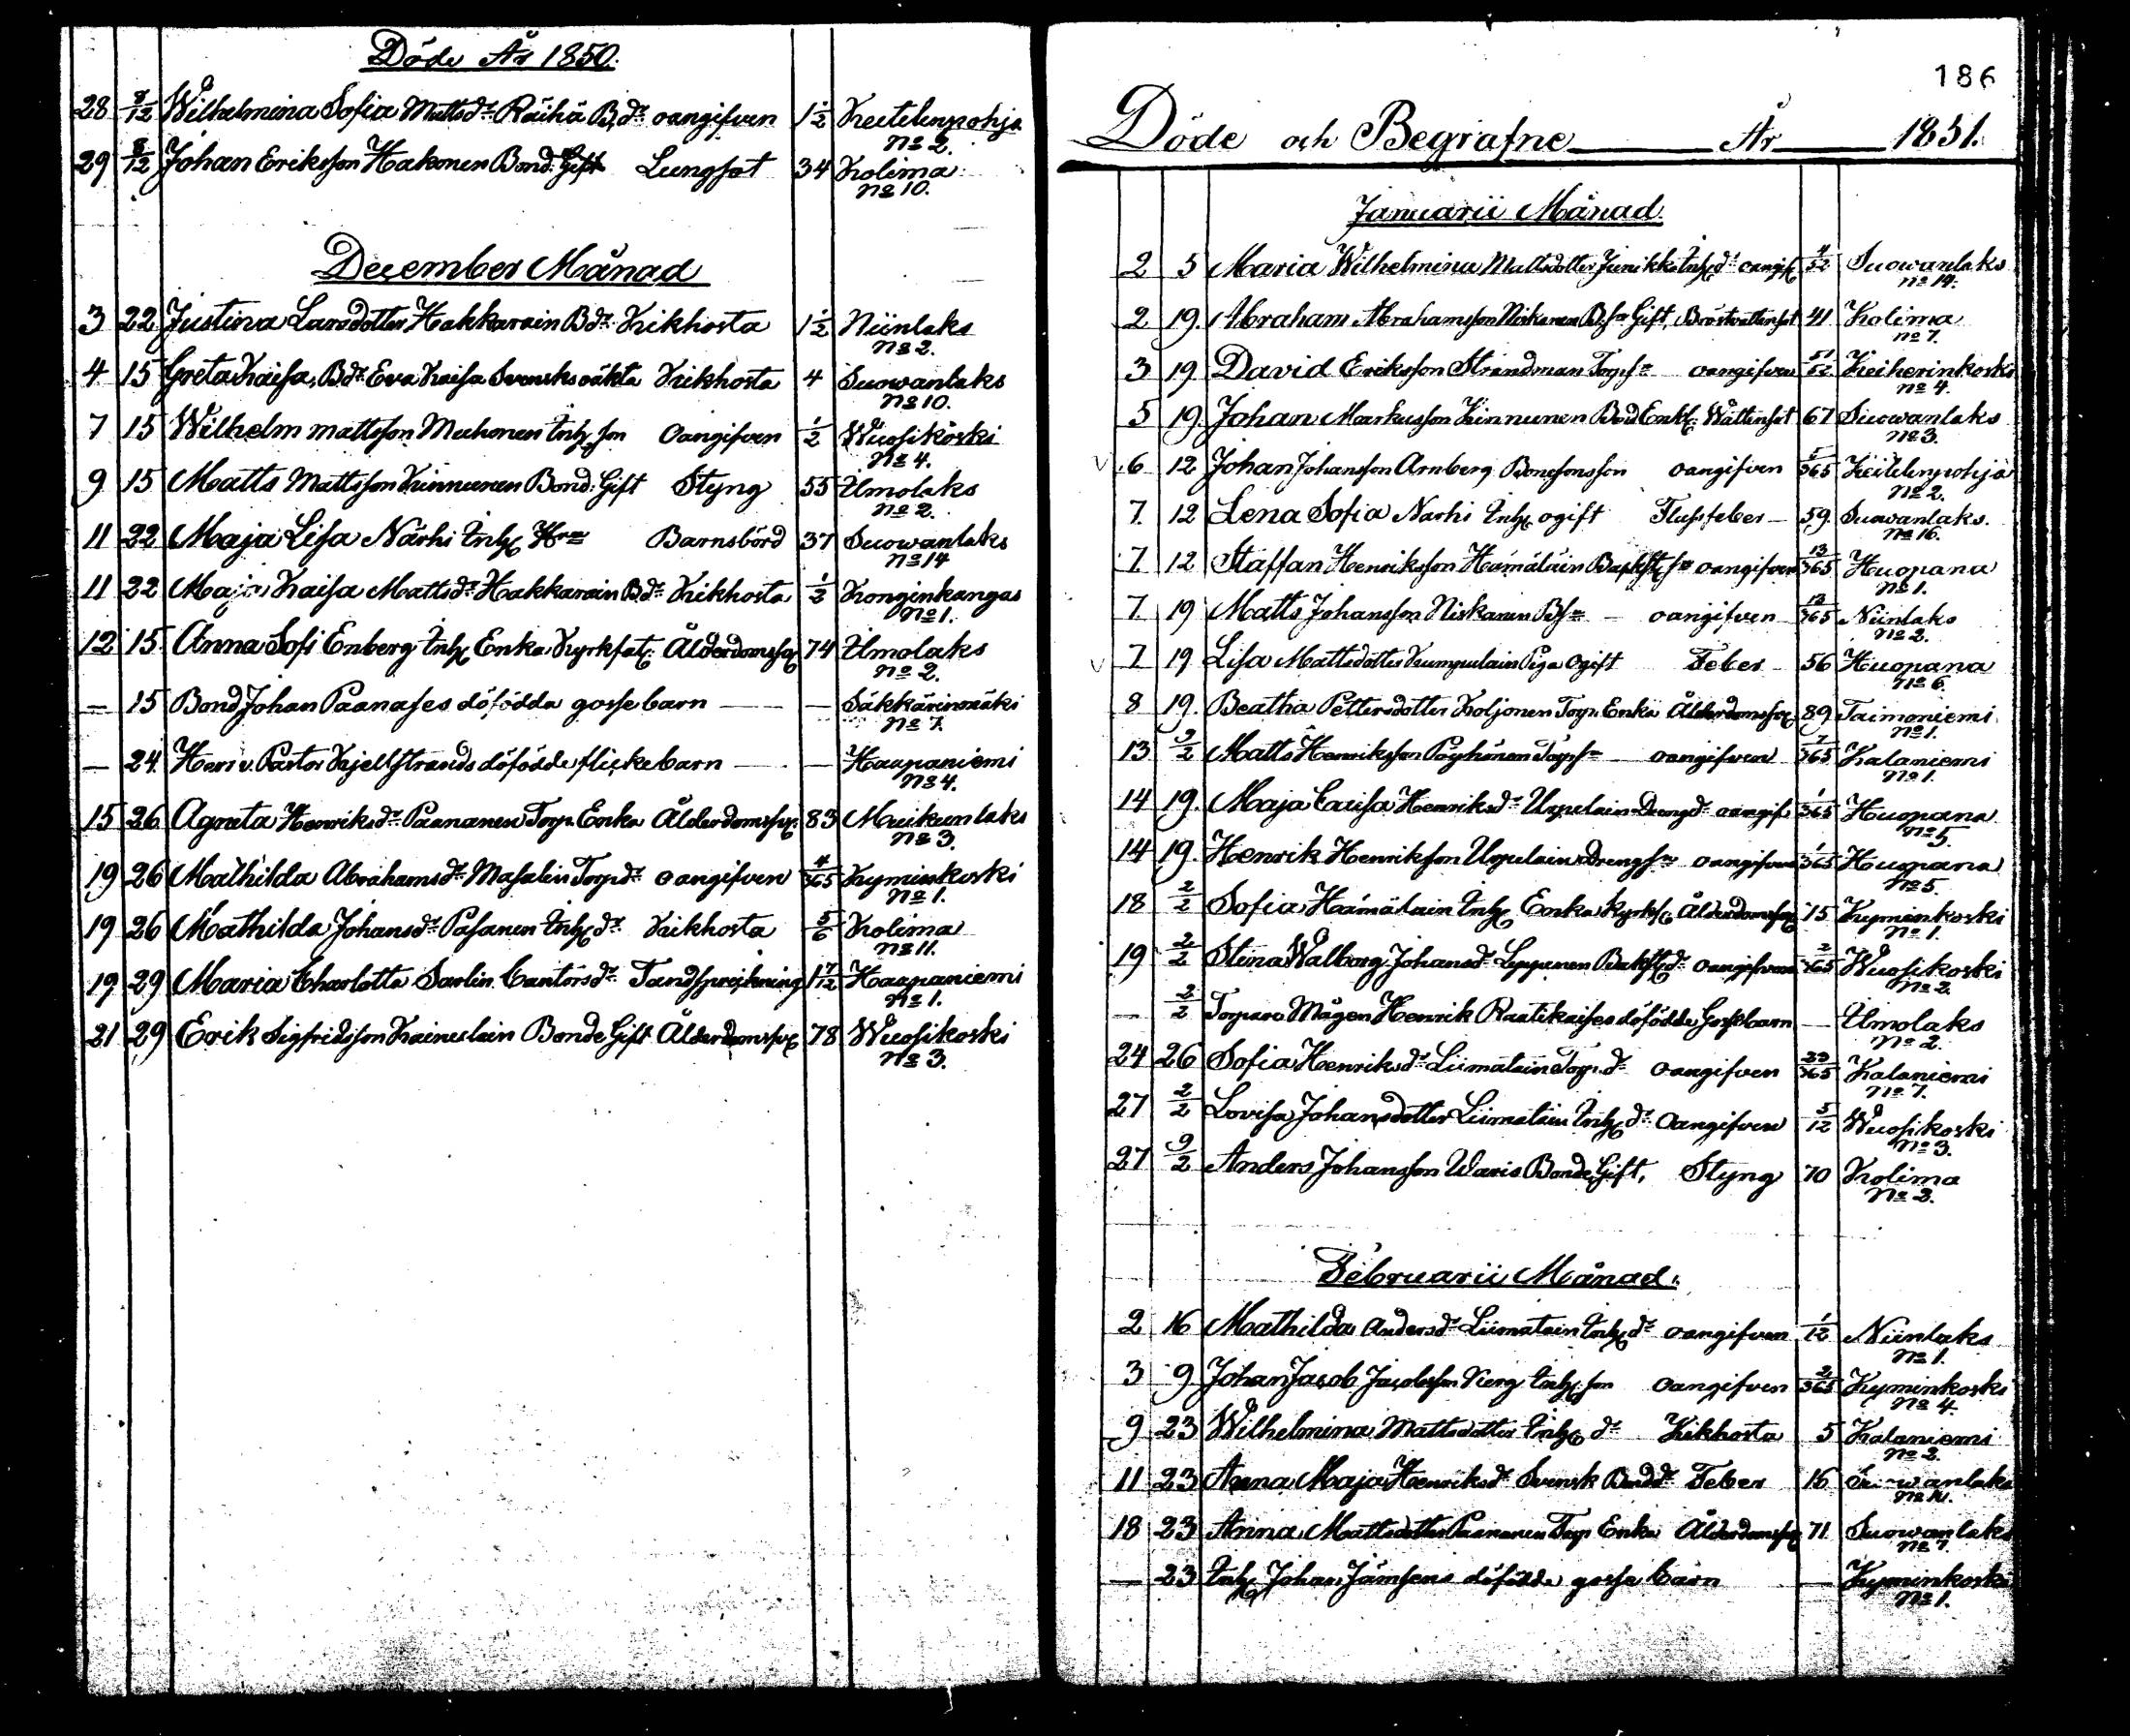 Döde År 1850.
28 8/12 Wilhelmina Sofia Mattsdr Räihä B.dr oangifven 1 1/2 Keitelenpohja
No 2.
29 8/12 Johan Eriksson Hakonen Bond. Gift Lungsot 34 Kolima
No 10.
December Månad
3 22 Justina Larsdotter Hakkarain Bdr Kikhosta 1 1/2 Niinlaks
No 2.
4 15 Greta Kaisa, Bdr Eva Kaisa Svensks oäkta Kikhosta 4 Suowanlaks
No 10.
7 15 Wilhelm mattsson Muhonen Inh. son Oangifven 1/2 Wuosikoski
No 4.
9 15 Matts Mattsson Kinnunen Bond. Gift Styng 55 Ilmolaks
No 2.
11 22 Maja Lisa Närhi Inh. Barnsbörd 37 Suowanlaks
No 14
11 22 Maja Kaisa Mattsdr Hakkarain B.dr Kikhosta 1/2 Konginkangas
No 1.
12 15 Anna Sofi Enberg Inh. Enka Kyrkfat. Ålderdomsf. 74 Ilmolaks
No 2.
— 15 Bond Johan Paanases döfödda gossebarn — — Säkkärinmäki
No 7.
— 24. Herr v. Pastor Kjellstrands döfödde flickebarn — — Haapaniemi
No 4.
15 26 Agneta Henriksdr Paananen Torp. Enka Ålderdomsf. 83 Muikunlaks
No 3.
19 26 Mathilda Abrahamsdr Masalin Torp.dr oangifven 4/365 Kyminkoski
No 1.
19 26 Mathilda Johansdr Pasanen Inh. dr Kikhosta 5/6 Kolima
No 11.
19 29 Maria Charlotta Sarlin Cantorsdr Tandsprickning 1 7/12 Haapaniemi
No 1.
21 29 Erik Sigfridsson Kainulain Bonde Gift Ålderdomsf. 78 Wuosikoski
No 3.
186
Döde och Begrafne År 1851.
Januarii Månad
2 5 Maria Wilhelmina Mattsdotter Inh. dr oangif. 4/52 Suowanlaks
No 14.
2 19. Abraham Abrahamsson Niskanen B.son Gift, Bröstvattensot 41 Kolima
No 7.
3 19 David Eriksson Strandman Torp.son oangifven 51/52 Keiherinkoski
No 4.
5 19. Johan Markusson Kinnunen Bond Enkl. Wattensot 67 Suowanlaks
No 3.
6 12 Johan Johansson Arnberg Bondsonsson oangifven 5/365 Keitelenpohja
No 2.
7. 12 Lena Sofia Narhi Inh. ogift Flussfeber — 59. Suowanlaks.
No 16.
7 12 Staffan Henriksson Hämäläin Bakst. son oangifven 13/365 Huopana
No 1.
7 19 Matts Johansson Niskanen B.son — oangifven 13/365 Niinlaks
No 2.
7 19 Lisa Mattsdotter Kumpulain Piga Ogift Feber 56 Huopana
No 6.
8 19. Beatha Pettersdotter Koljonen Torp. Enka Ålderdomsf. 89 Taimoniemi
No 1.
13 9/2 Matts Henriksson Pöyhönen Torp.son oangifven 7/365 Kalaniemi
No 1.
14 19. Maja Caisa Henriksdr Urpulain Drengdr oangif. 1/365 Huopana
No 5.
14 19. Henrik Henriksson Urpulain Drengson oangifven 1/365 Huopana
No 5.
18 2/2 Sofia Hämäläin Inh. Enka Kyrkf. Ålderdomsf. 75 Kyminkoski
No 1.
19 2/2 Stina Walborg Johansdr Leppänen Bakst. dr oangifven 2/365 Wuosikoski
No 2.
— 2/2 Torpare Mågen Henrik Raatikaises döfödde Gossebarn — Ilmolaks
No 2.
24 26 Sofia Henriksdr Liimatain Torp. dr oangifven 23/365 Kalaniemi
No 7.
27 2/2 Lovisa Johansdotter Liimatain Inh. dr Oangifven 5/12 Wuosikoski
No 3.
27 9/2 Anders Johansson Waris Bonde Gift, Styng 70 Kolima
No 2.
Februarii Månad.
2 16 Mathilda Andersdr Liimatain Inh. dr oangifven 1/12 Niinlaks
No 1.
3 9. Johan Jacob Jacobsson Inh. son oangifven 2/365 Kyminkoski
No 4.
9 23 Wilhelmina Mattsdotter Inh. dr Kikhosta 5 Kalaniemi
No 2.
11 23 Anna Maja Henriksdr Svensk Bonddr Feber 16 Suowanlaks
No 10.
18 23 Anna Mattsdotter Paananen Torp. Enka Ålderdomsf. 71. Suowanlaks
No 7.
— 23 Inh. Johan Jämsens döfödda gosse barn — Kyminkoski
No 1.